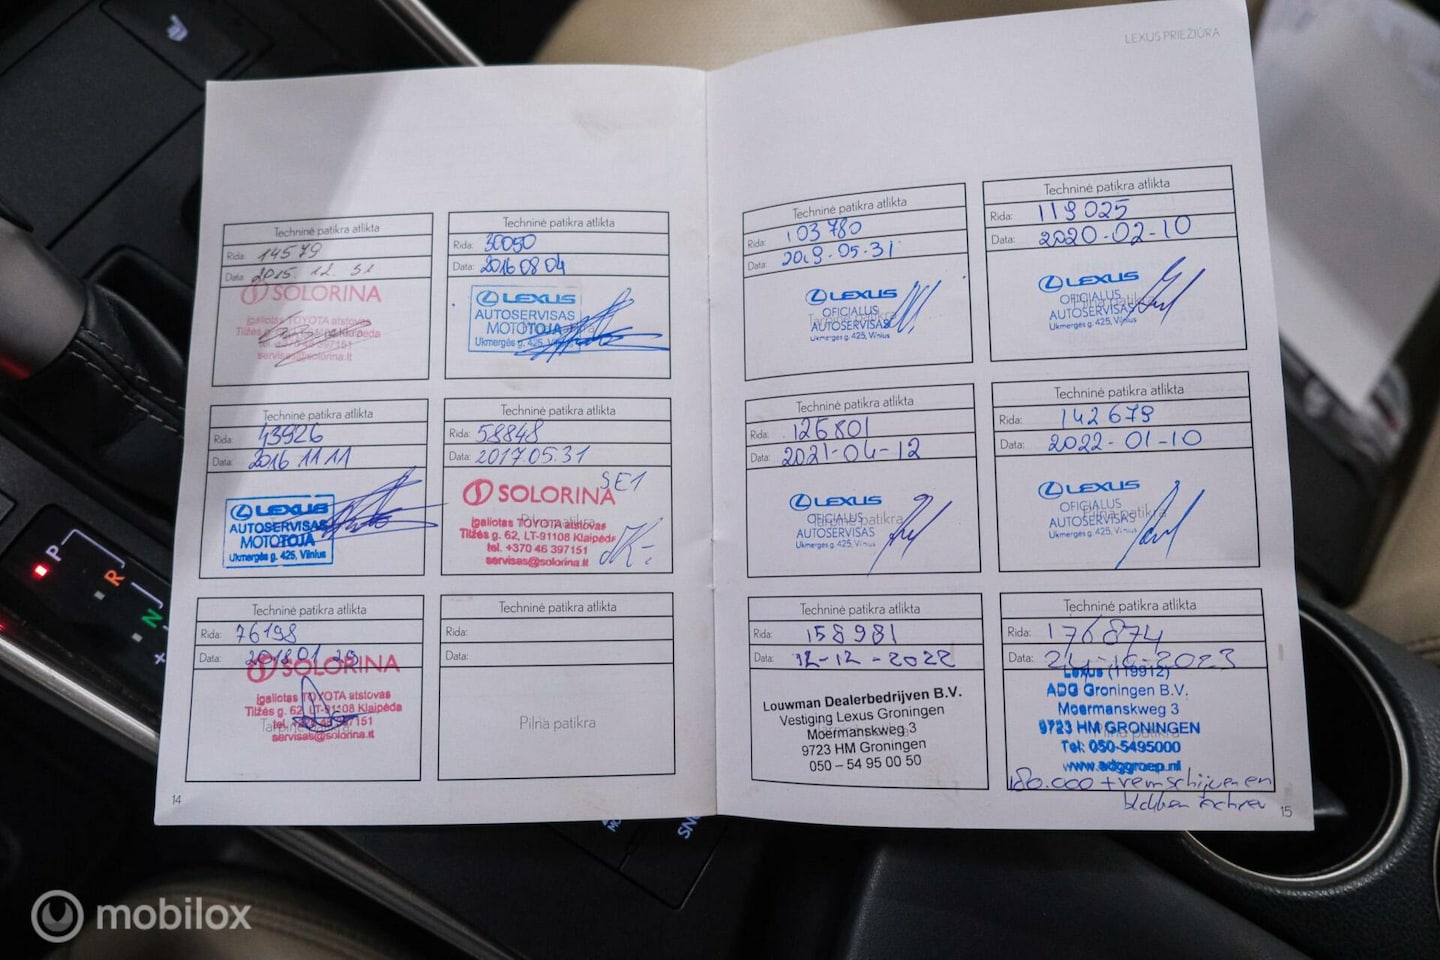 LEXUS PRIEŽIŪRA
Techninė patikra atlikta
Rida: 14579
Data: 2015. 12. 31
SOLORINA
Įgaliotas TOYOTA atstovas
tel. +370 46 397151
servisas@solorina.lt
Techninė patikra atlikta
Rida: 30050
Data: 2016 08 04
LEXUS
AUTOSERVISAS
MOTOTOJA
Ukmergės g. 425, Vilnius
Techninė patikra atlikta
Rida: 43926
Data: 2016 11 11
LEXUS
AUTOSERVISAS
MOTOTOJA
Ukmergės g. 425, Vilnius
Techninė patikra atlikta
Rida: 58848
Data: 2017.05.31
SE1
SOLORINA
Įgaliotas TOYOTA atstovas
Tilžės g. 62, LT-91108 Klaipėda
tel. +370 46 397151
servisas@solorina.lt
Techninė patikra atlikta
Rida: 76198
Data: 2018 01 29
SOLORINA
Įgaliotas TOYOTA atstovas
Tilžės g. 62, LT-91108 Klaipėda
servisas@solorina.lt
Techninė patikra atlikta
Rida:
Data:
Pilna patikra
14
Techninė patikra atlikta
Rida: 103780
Data: 2019-05-31
LEXUS
OFICIALUS
AUTOSERVISAS
Ukmergės g. 425, Vilnius
Techninė patikra atlikta
Rida: 119025
Data: 2020-02-10
LEXUS
OFICIALUS
AUTOSERVISAS
Ukmergės g. 425, Vilnius
Techninė patikra atlikta
Rida: 126801
Data: 2021-04-12
LEXUS
OFICIALUS
AUTOSERVISAS
Ukmergės g. 425, Vilnius
Techninė patikra atlikta
Rida: 142679
Data: 2022-01-10
LEXUS
OFICIALUS
AUTOSERVISAS
Ukmergės g. 425, Vilnius
Techninė patikra atlikta
Rida: 158981
Data: 12-12-2022
Louwman Dealerbedrijven B.V.
Vestiging Lexus Groningen
Moermanskweg 3
9723 HM Groningen
050 – 54 95 00 50
Techninė patikra atlikta
Rida: 176874
Data: 2023
Lexus (119912)
ADG Groningen B.V.
Moermanskweg 3
9723 HM GRONINGEN
Tel: 050-5495000
www.adggroep.nl
180.000 + remschijven en
blokken achter
15
P
R
N
mobilox